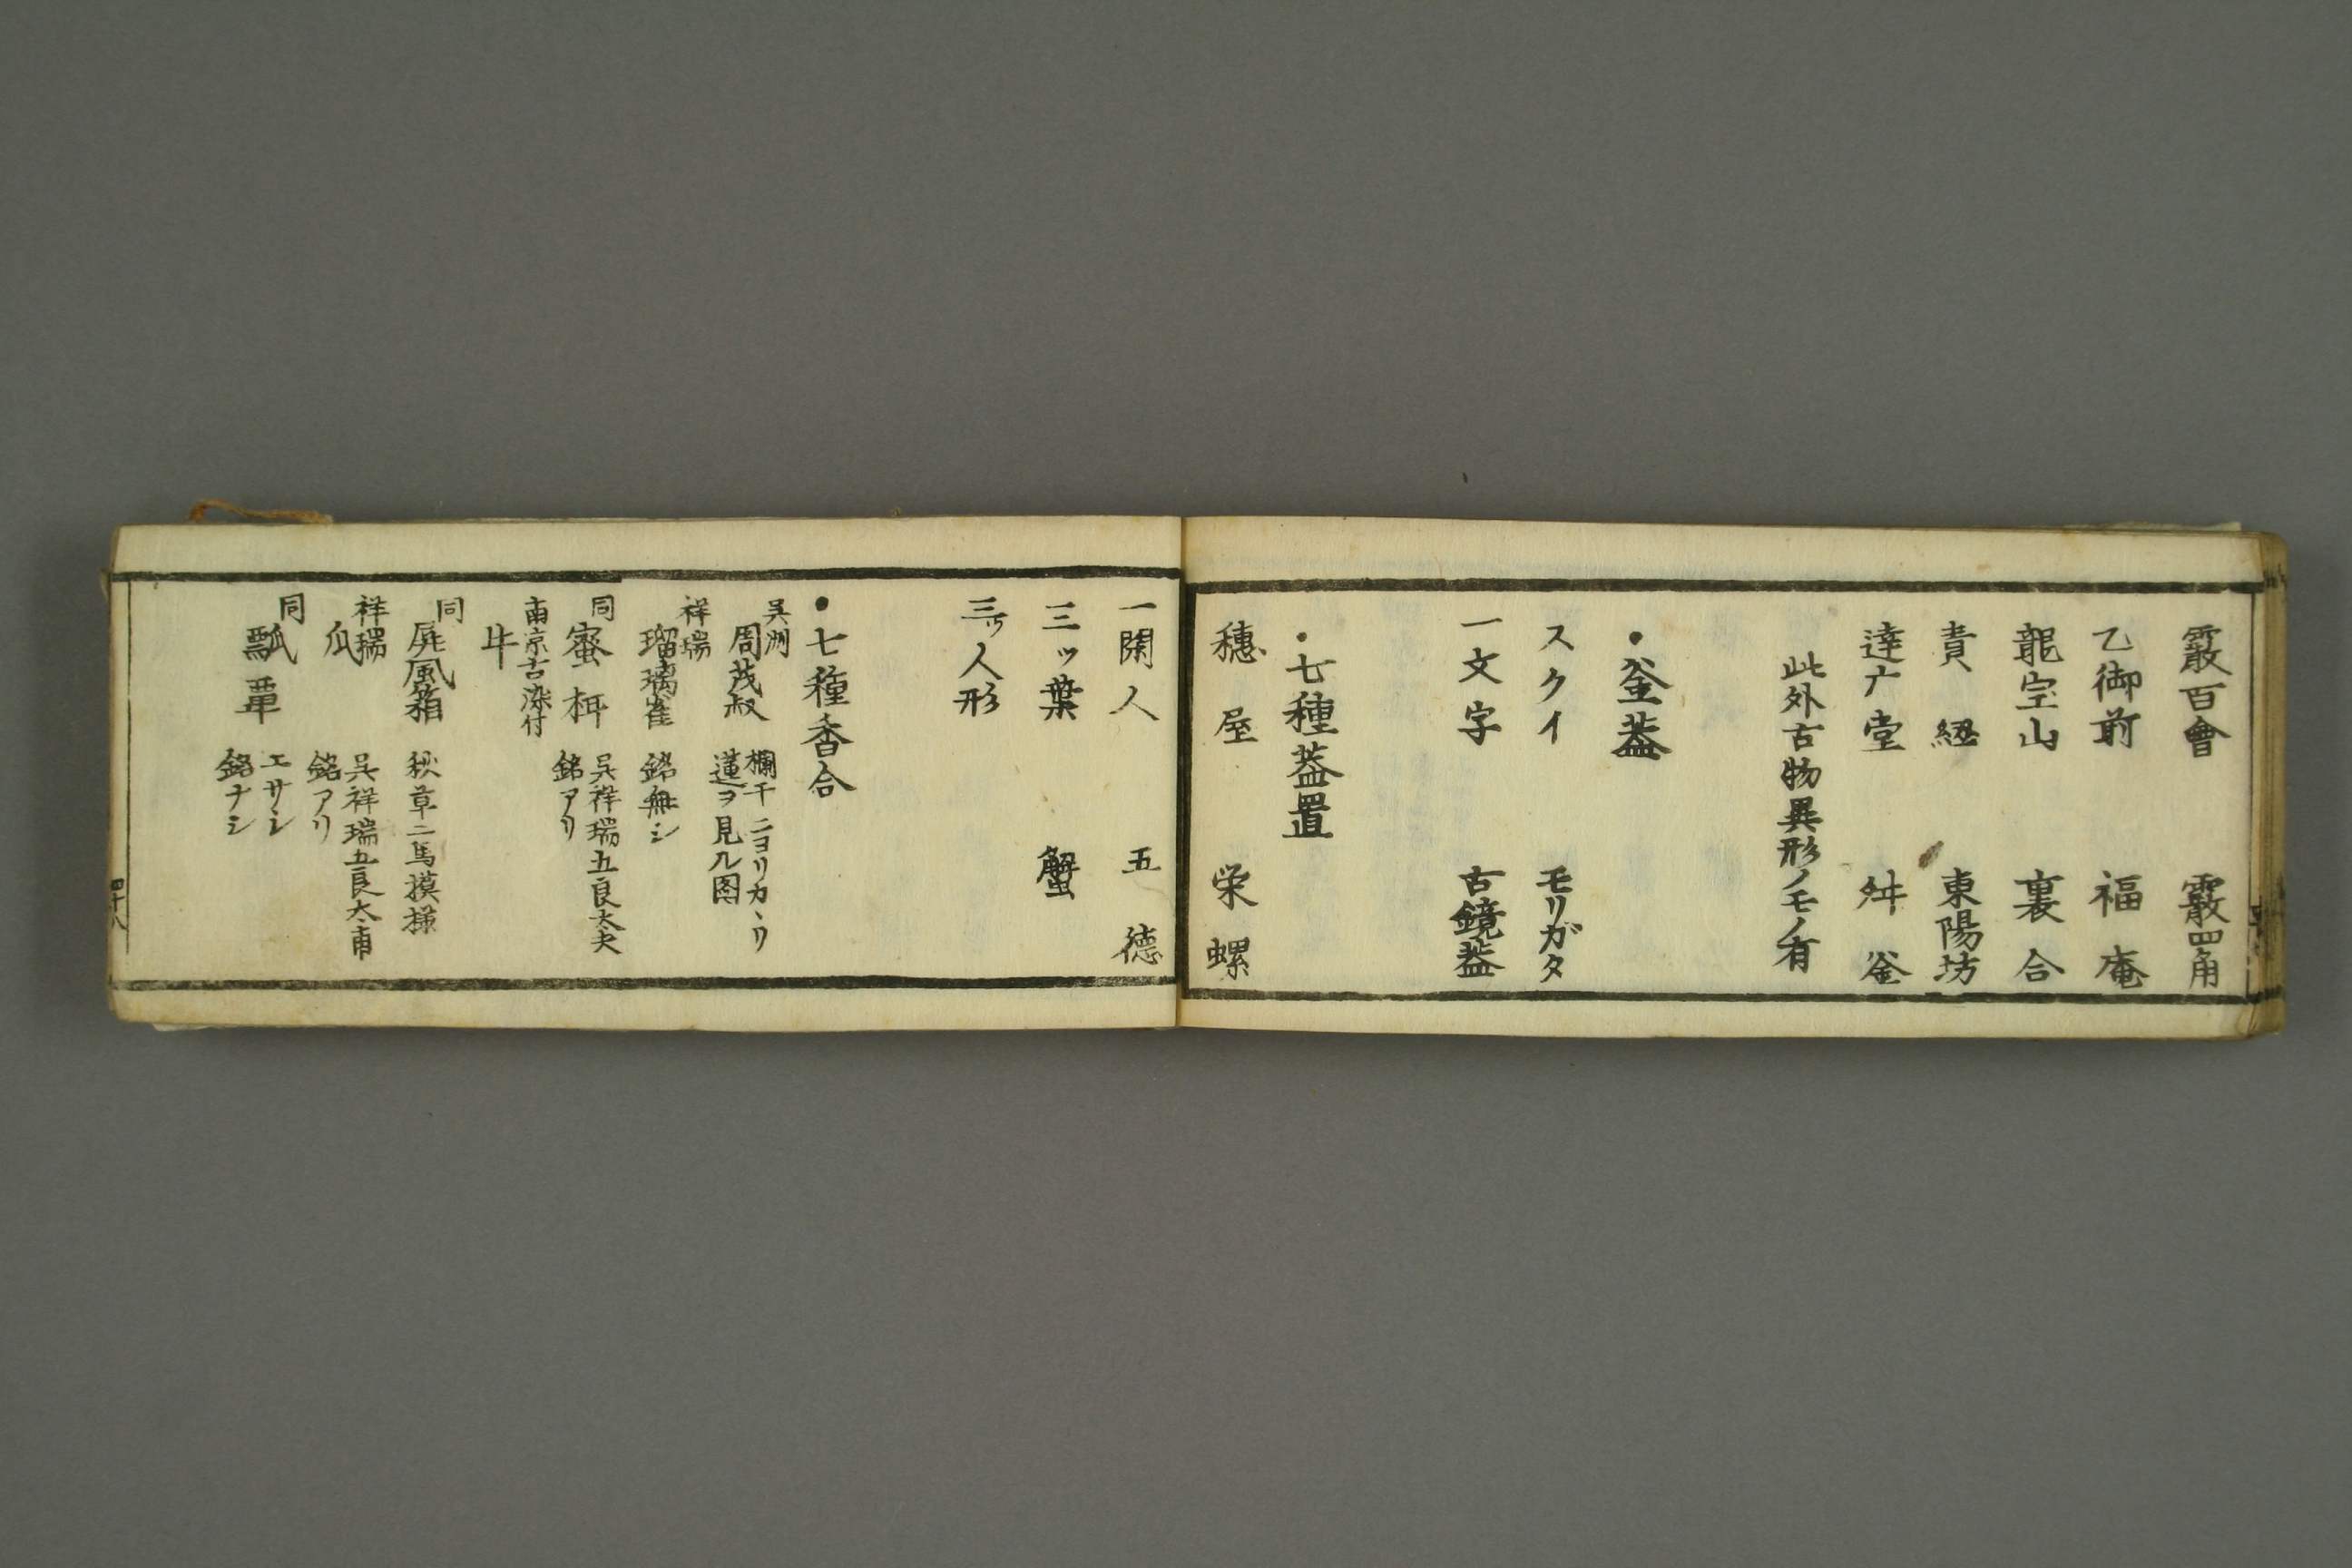 霰百會　霰四角
乙御前　福庵
龍宝山　裏合
責紐　東陽坊
達广堂　舛釜
此外古物異形ノモノ有
・釜蓋
スクイ　モリガタ
一文字　古鏡蓋
・七種蓋置
穗屋　栄螺
一閑人　五德
三ッ葉　蟹
三ッ人形
・七種香合
呉洲
周茂叔　欄干ニヨリカヽリ
蓮ヲ見ル図
祥瑞
瑠璃雀　銘無シ
同
蜜柑　呉祥瑞五良太夫
銘アリ
南京古染付
牛
同
屏風箱　秋草ニ馬摸様
祥瑞
瓜　呉祥瑞五良太甫
銘アリ
同
瓢覃　エサシ
銘ナシ
四十八